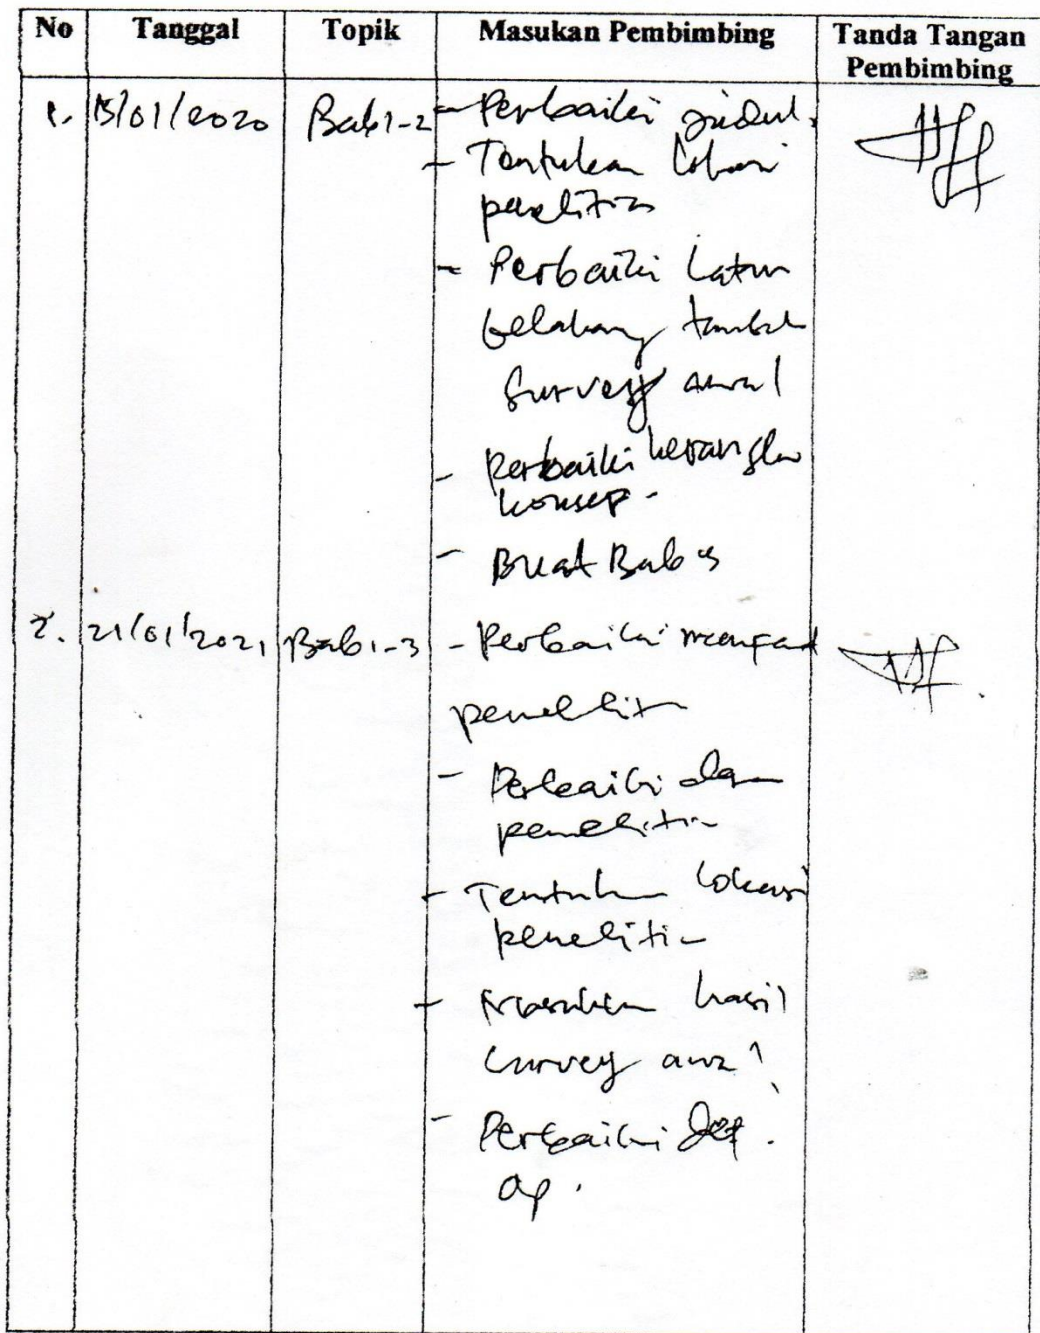 No Tanggal Topik Masukan Pembimbing Tanda Tangan Pembimbing
1. 15/01/2020 Bab 1-2 - Perbaiki judul.
- Tentukan lokasi
penelitian
- Perbaiki latar
belakang tambah
survey awal
- perbaiki kerangka
konsep -
- Buat Bab 3
2. 21/01/2021 Bab 1-3 - Perbaiki manfaat
penelitian
- Perbaiki
penelitian
- Tentukan lokasi
penelitian
- Masukan hasil
survey awal
- Perbaiki def.
op.